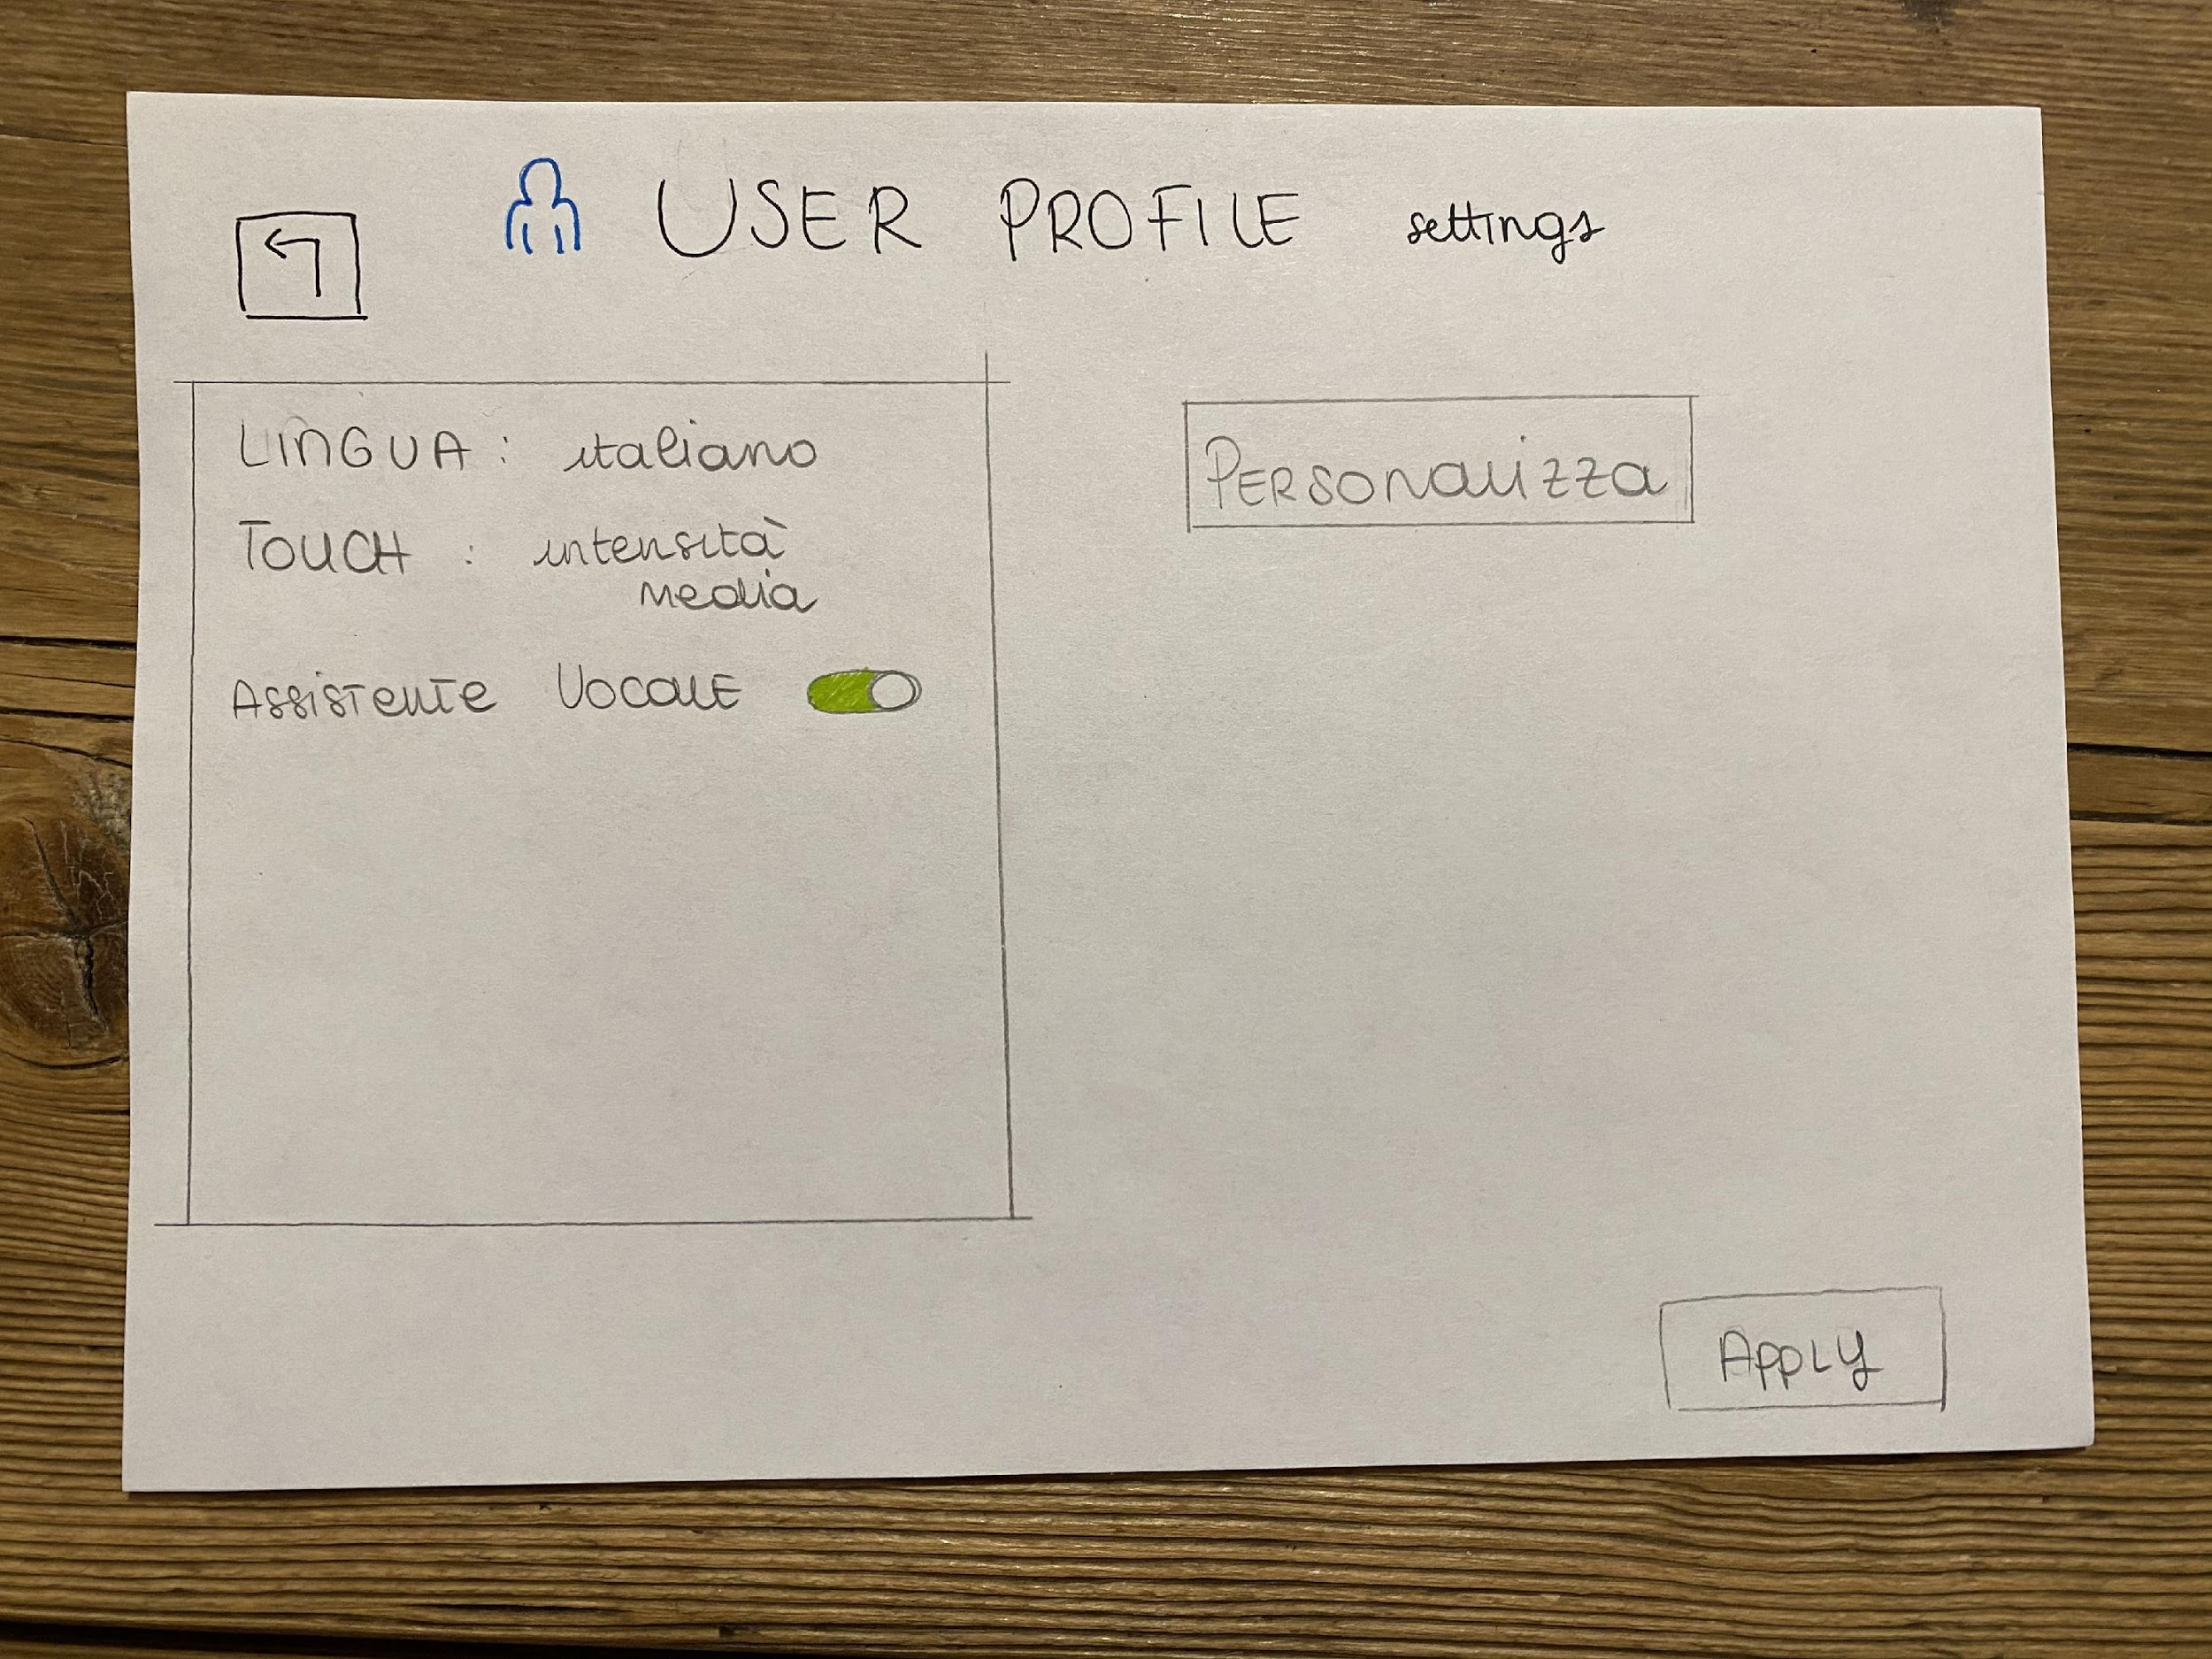 USER PROFILE settings
LINGUA : italiano
TOUCH : intensità
media
Assistente Vocale
Personalizza
Apply